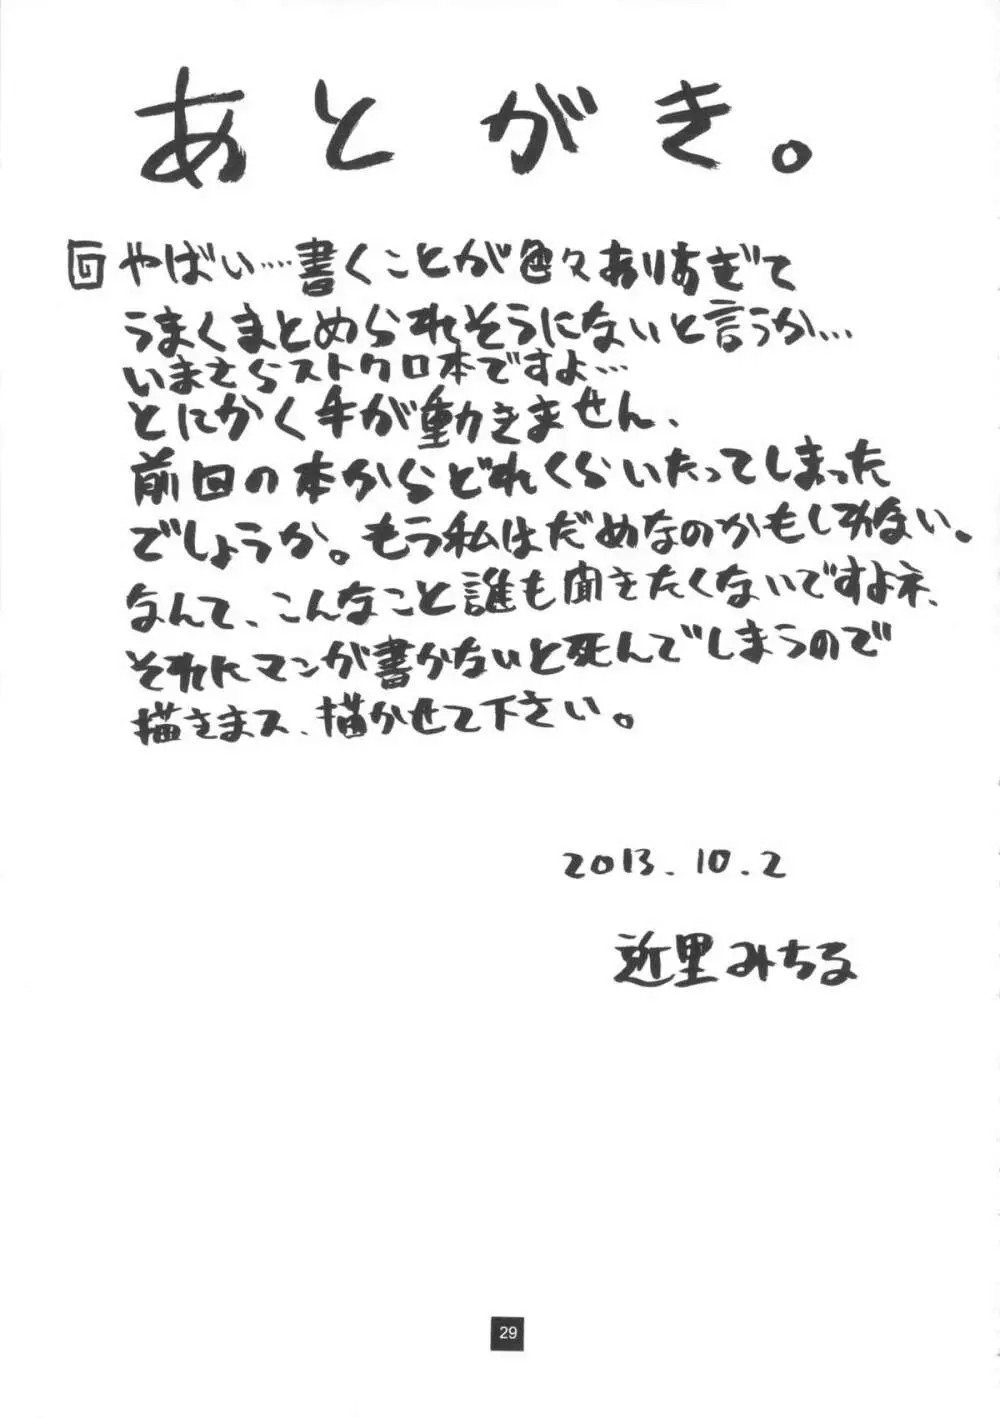 あとがき。
回やばい…書くことが色々ありすぎて
うまくまとめられそうにないと言うか…
いまさらストクロ本ですよ…
とにかく手が動きません、
前回の本からどれくらいたってしまった
でしょうか。もう私はだめなのかもしれない。
なんて、こんなこと誰も聞きたくないですよネ、
それにマンが書かないと死んでしまうので
描きまス、描かせて下さい。
2013.10.2
近里みちる
29